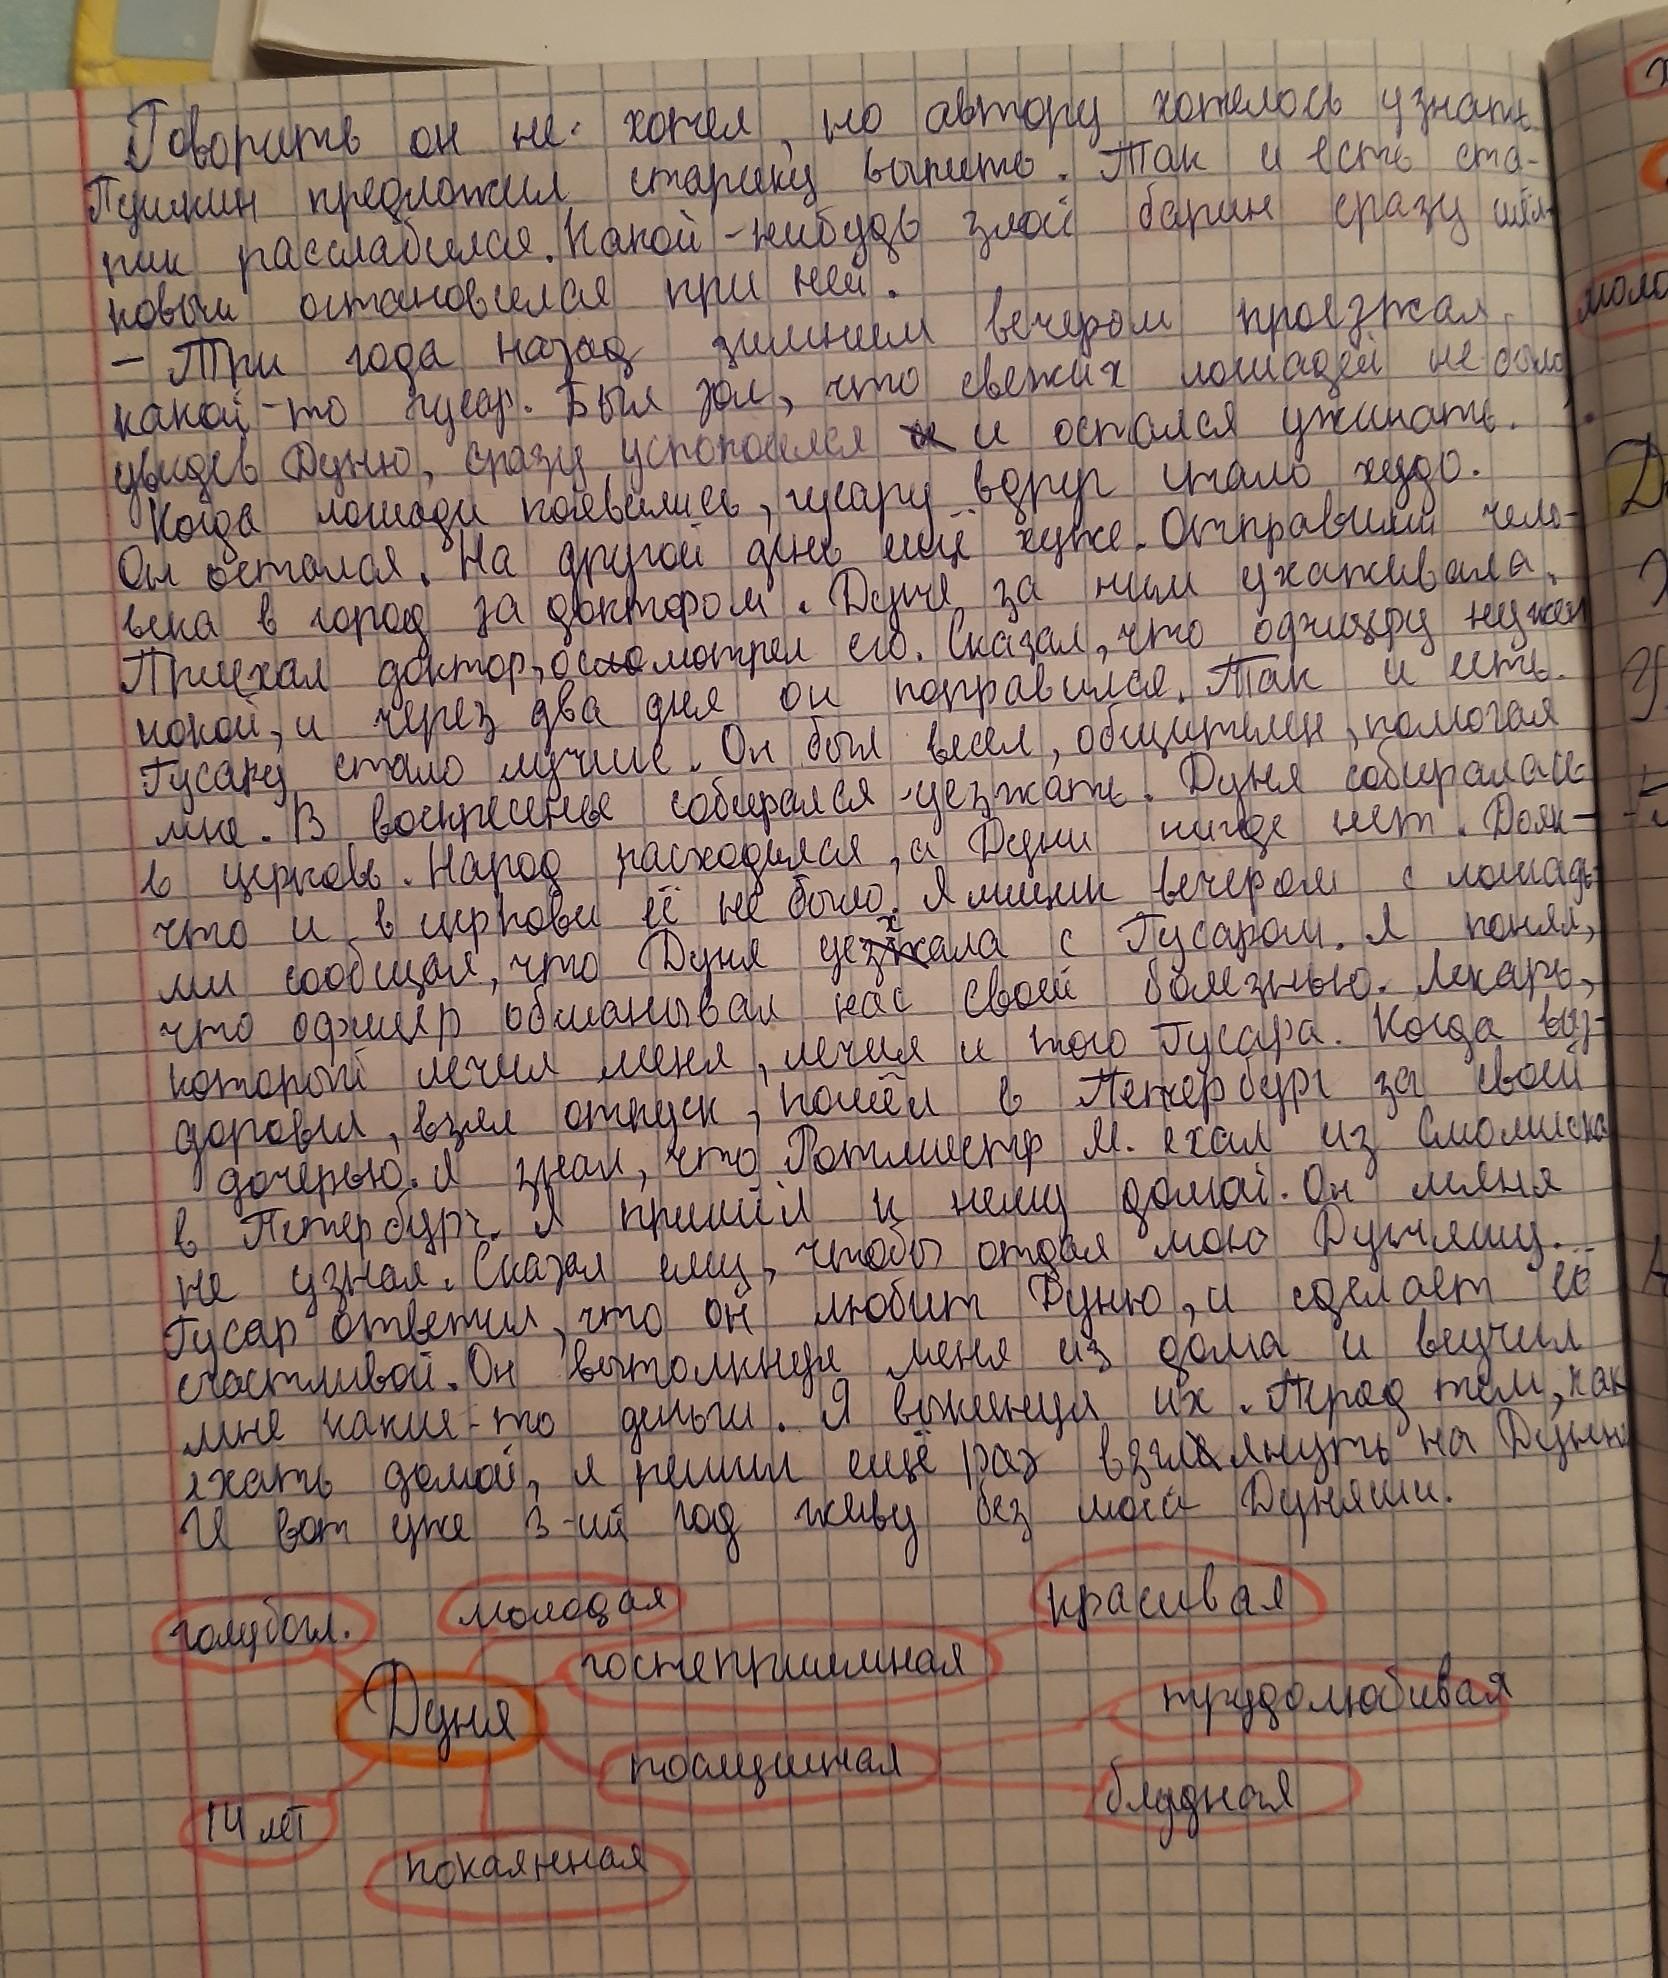 Говорить он не хотел, но автору хотелось узнать.
Пушкин предложил старику выпить. Так и есть ста-
рик расслабился. Какой-нибудь злой барин сразу шёл-
ковым становился при ней.
– Три года назад зимнем вечером проезжал
какой-то гусар. Был зол, что свежих лошадей не было
увидев Дуню, сразу успокоился и остался ужинать.
Когда лошади появились, гусару вдруг стало худо.
Он остался. На другой день ещё хуже. Отправили чело-
века в город за доктором. Дуня за ним ухаживала.
Приехал доктор, осмотрел его. Сказал, что офицеру нужен
покой, и через два дня он поправился. Так и есть.
Гусару стало лучше. Он был весел, общителен, помогал
мне. В воскресенье собирался уезжать. Дуня собиралась
в церковь. Народ расходился, а Дуни нигде нет. Дьяк –
что и в церкви её не было. Ямщик вечером с лошадь-
ми сообщал, что Дуня уехала с Гусаром. Я понял,
что офицер обманывал нас своей болезнью. Лекарь,
который лечил меня, лечил и того Гусара. Когда выз-
доровел, взял отпуск, пошёл в Петербург за своей
дочерью. Я знал, что Ротмистр М. ехал из Смоленска
в Петербург. Я пришёл к нему домой. Он меня
не узнал. Сказал ему, чтобы отдал мою Дуняшу.
Гусар ответил, что он любит Дуню, и сделает её
счастливой. Он вытолкнул меня из дома и всучил
мне какие-то деньги. Я выкинул их. Перед тем, как
ехать домой, я решил ещё раз взглянуть на Дуню
И вот уже 3-ий год живу без моей Дуняши.
голубогл.
молодая
красивая
гостеприимная
Дуня
трудолюбивая
послушная
блудная
14 лет
покаянная